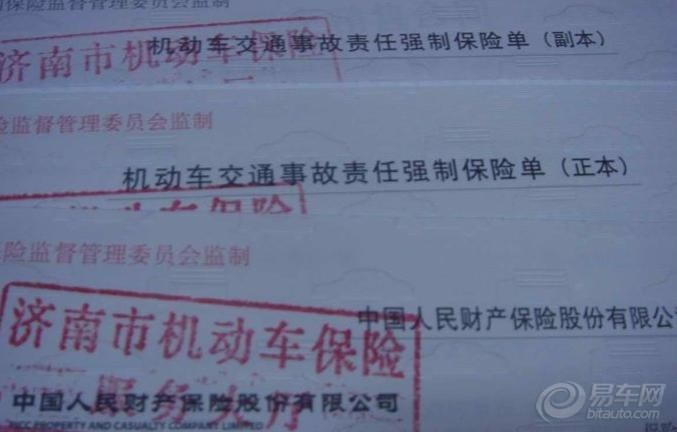 保险监督管理委员会监制
机动车交通事故责任强制保险单（副本）
济南市机动车保险
险监督管理委员会监制
机动车交通事故责任强制保险单（正本）
保险监督管理委员会监制
中国人民财产保险股份有限公
济南市机动车保险
服务大厅
中国人民财产保险股份有限公司
PICC PROPERTY AND CASUALTY COMPANY LIMITED
易车网
bitauto.com